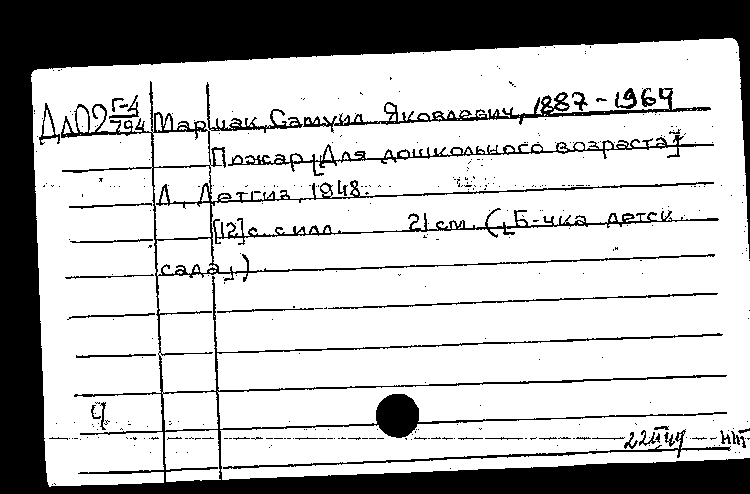 Дл09 Г-4/794 Маршак, Самуил Яковлевич, 1887-1964
Пожар [Для дошкольного возраста]
Л., Детгиз, 1948.
[12] с. с илл. 21 см. („Б-чка детск.
сада")
ч
22 III 49 ННТ